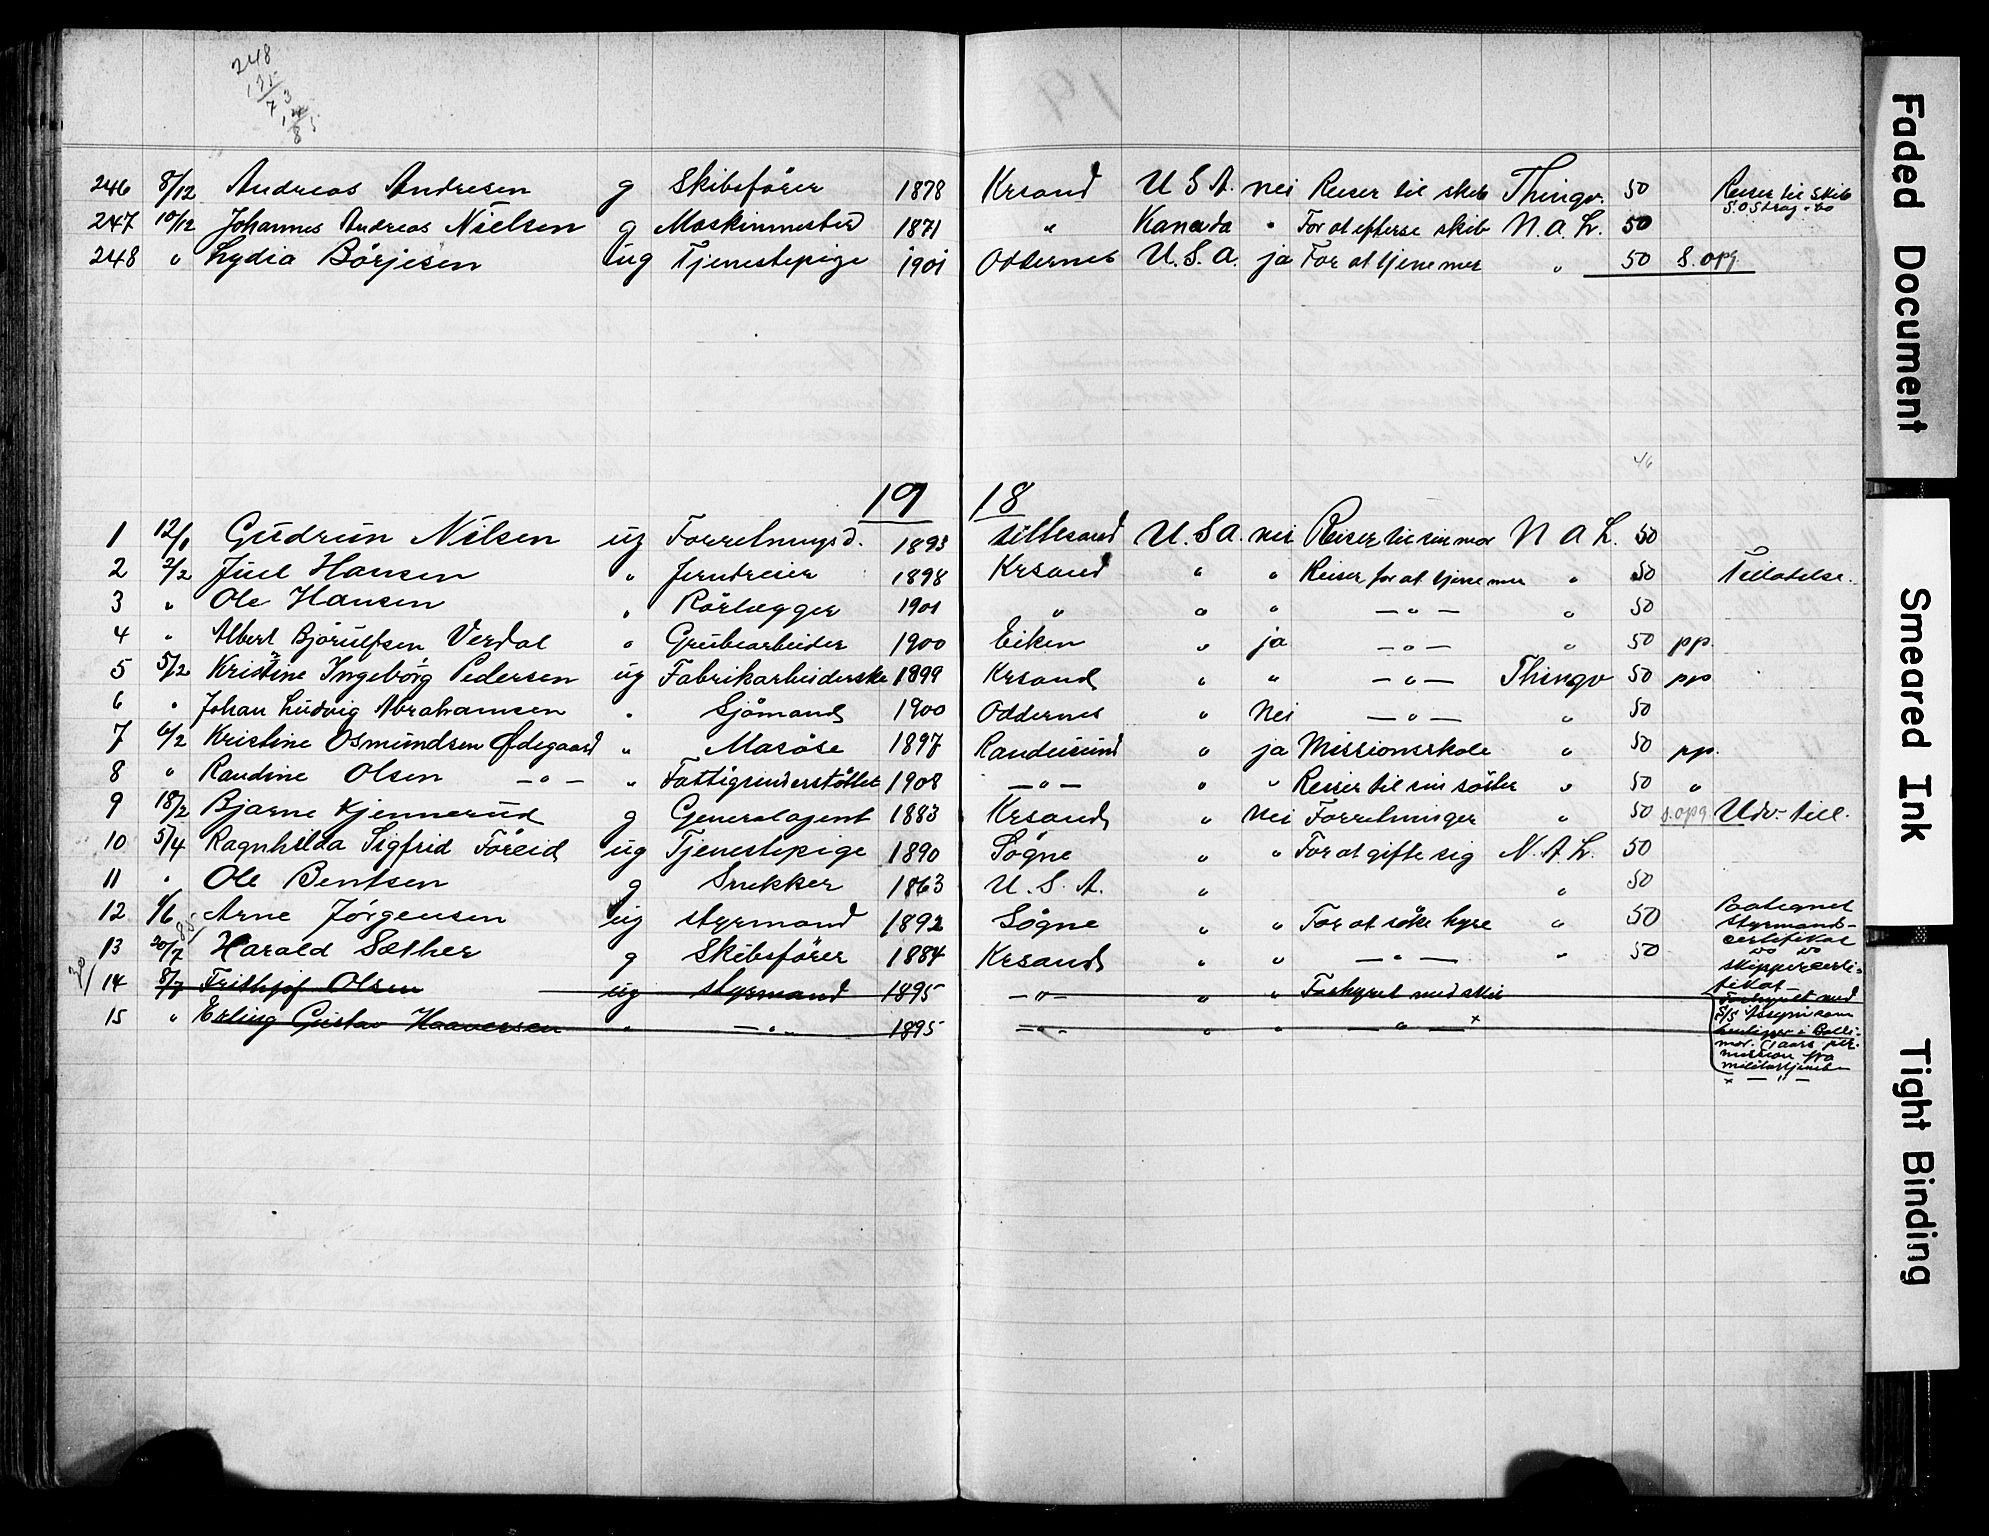 248
246 8/12 Andreas Andresen g Skibsfører 1878 Krsand U S A. nei Reiser til skib Thingv. 50 Reiser til skib
247 10/12 Johannes Andreas Nielsen g Maskinmester 1871 " Kanada " For at efterse skib N. A. L. 50
248 " Lydia Börjesen ug Tjenestepige 1901 Oddernes U. S. A. ja For at tjene mer " 50 S. opg
19 18
1 12/1 Gudrun Nilsen ug Forretningsd. 1893 Lillesand U. S A. nei Reiser til sin mor N A L. 50
2 2/2 Juel Hansen " Jerndreier 1898 Krsand " " Reiser for at tjene mer " 50 Tillatelse.
3 " Ole Hansen " Rörlægger 1901 " " " — " — " 50
4 " Albert Bjorulfsen Verdal " Grubearbeider 1900 Eiken " ja — " — " 50 pp.
5 5/2 Kristine Ingeborg Pedersen ug Fabrikarbeiderske 1899 Krsand " " — " — Thingv 50 pp
6 " Johan Ludvig Abrahamsen " Sjömand 1900 Oddernes " Nei — " — " 50
7 6/2 Kristine Osmundsen Ødegaard " Masöse 1897 Randøsund " ja Missionsskole " 50 pp.
8 " Randine Olsen — " — " Fattigunderstöttet 1908 — " — " " Reiser til sin söster " 50 "
9 18/2 Bjarne Kjennerud g Generalagent 1883 Krsand " Nei Forretninger " 50 S. opg Udv. till.
10 5/4 Ragnhilda Sigfrid Föreid ug Tjenestepige 1890 Sögne " " For at gifte sig N. A. L. 50
11 " Ole Bentsen g Snekker 1863 U. S. A. " " 50
12 1/6 Arne Jørgensen ug Styrmand 1892 Sögne " " For at söke hyre " 50 styrmands-
certifikat
13 20/7 Harald Sæther g Skibsförer 1884 Krsand " " — " — " 50
skippercerti-
fikat
14 8/7 Frithjof Olsen ug Styrmand 1895 — " — " " Forhyret med skib Forhyret med
15 " Erling Gustav Haaversen " — " — 1895 — " — " " — " — x
S/S som
ligger i Balti-
mor. (1 aars per-
mission fra
militærtjeneste
x — " —
Faded Document
Smeared Ink
Tight Binding